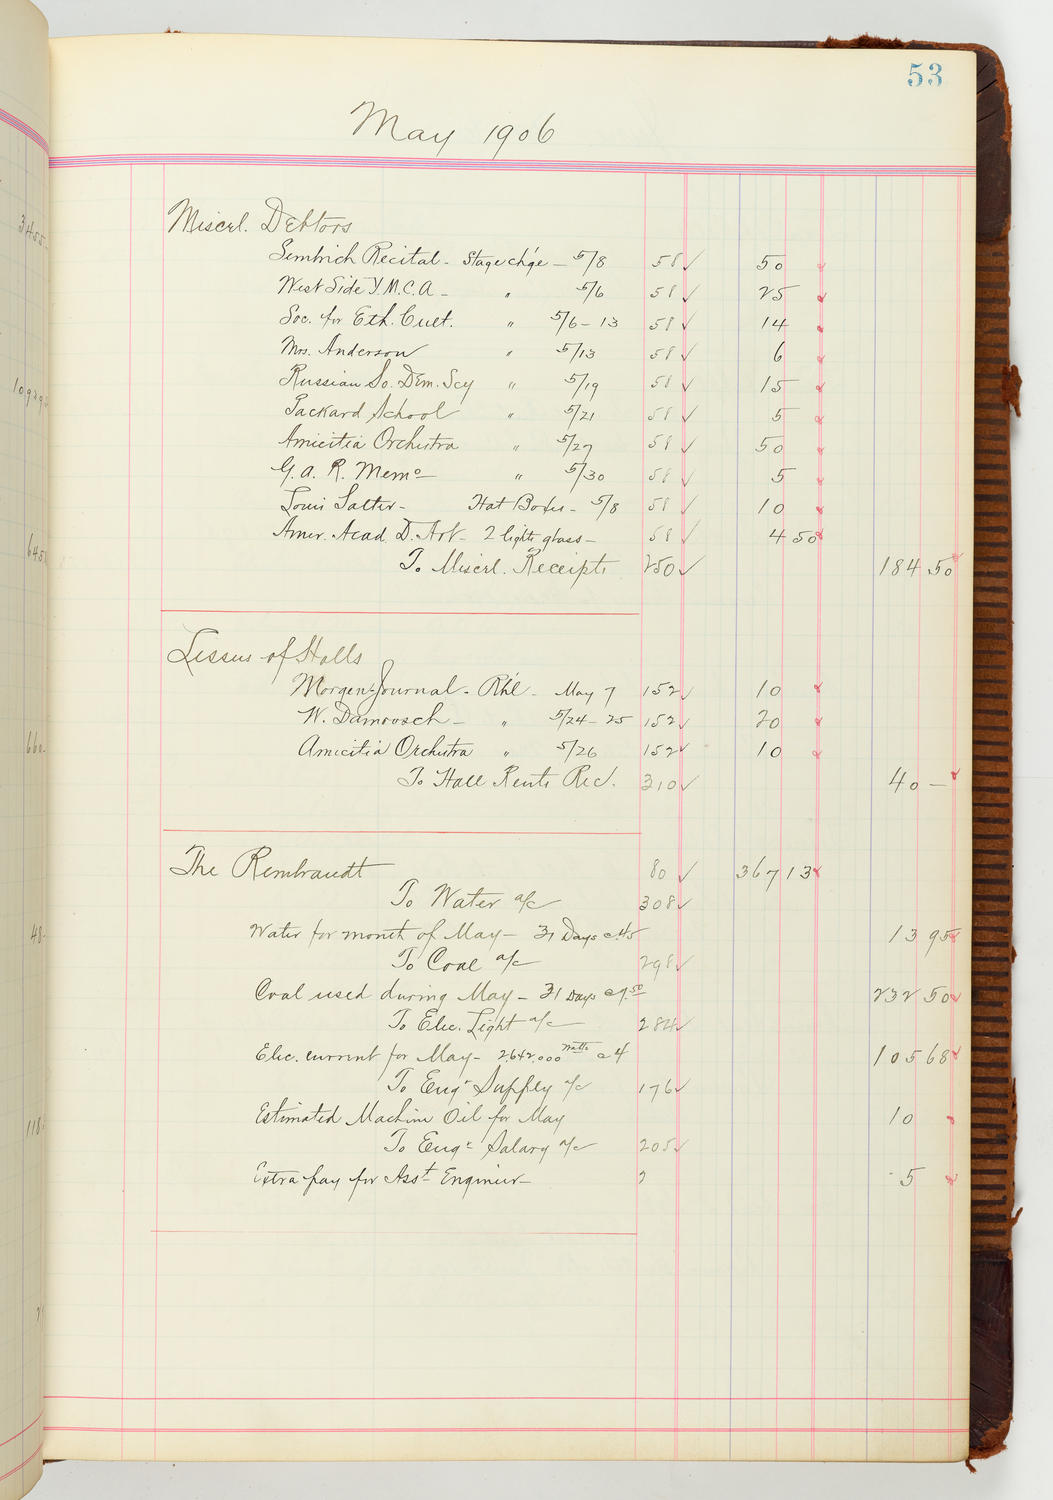 53
May 1906
Miscel. Debtors
Sembrich Recital - Stage ch'ge - 5/8 58 ✓ 50
West Side Y.M.C.A - " 5/6 58 ✓ 25
Soc. for Eth. Cult. " 5/6-13 58 ✓ 14
Mrs. Anderson " 5/13 58 ✓ 6
Russian So. Dem. Scy " 5/19 58 ✓ 15
Packard School " 5/21 58 ✓ 5
Amicitia Orchestra " 5/27 58 ✓ 50
G. A. R. Mem° " 5/30 58 ✓ 5
Louis Salter - Hat Boxes - 5/8 58 ✓ 10
Amer. Acad. D. Art - 2 light glass - 58 ✓ 4 50
To Miscel. Receipts 250 ✓ 184 50
Lessees of Halls
Morgen-Journal - Rh'l - May 7 152 ✓ 10
W. Damrosch - " 5/24-25 152 ✓ 20
Amicitia Orchestra " 5/26 152 ✓ 10
To Hall Rents Rec'd. 310 ✓ 40 -
The Rembrandt 80 ✓ 367 13
To Water a/c 308 ✓
Water for month of May - 31 Days @ .45 13 95
To Coal a/c 298 ✓
Coal used during May - 31 Days @ 7.50 232 50
To Elec. Light a/c 284 ✓
Elec. current for May - 2,642,000 Watts @ 4 105 68
To Engr Supply a/c 176 ✓
Estimated Machine Oil for May 10
To Engr Salary a/c 205 ✓
Extra pay for Asst Engineer - 5